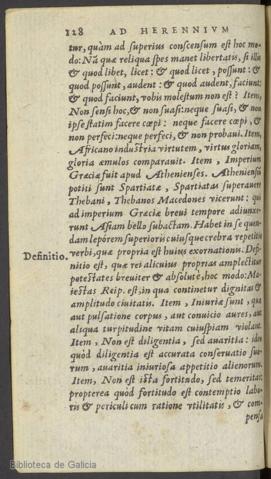 128 AD HERENNIVM
tur, quàm ad superius conscensum est hoc mo-
do: Nã quæ reliqua spes manet libertatis, si illis
& quod libet, licet: & quod licet, possunt: &
quod possunt, audent: & quod audent, faciunt:
& quod faciunt, vobis molestum non est? Item,
Non sensi hoc, & non suasi: neque suasi, & non
ipse statim facere cœpi: neque facere cœpi, &
non perfeci: neque perfeci, & non probaui. Item,
Africano industria virtutem, virtus gloriam,
gloria æmulos comparauit. Item, Imperium
Græciæ fuit apud Athenienses. Atheniensiũ
potiti sunt Spartiatæ, Spartiatas superauere
Thebani, Thebanos Macedones vicerunt: qui
ad imperium Græciæ breui tempore adiunxe-
runt Asiam bello subactam. Habet in se quen-
dam leporem superioris cuiusque crebra repetitio
verbi, quæ propria est huius exornationis. Defi-
Definitio.
nitio est, quæ rei alicuius proprias amplectitur
potestates breuiter & absolutè, hoc modo: Ma-
iestas Reip. est, in qua continetur dignitas &
amplitudo ciuitatis. Item, Iniuriæ sunt, quæ
aut pulsatione corpus, aut conuicio aures, aut
aliqua turpitudine vitam cuiuspiam violant.
Item, Non est diligentia, sed auaritia: ideo
quòd diligentia est accurata conseruatio suo-
rum, auaritia iniuriosa appetitio alienorum.
Item, Non est ista fortitudo, sed temeritas:
propterea quòd fortitudo est contemptio labo-
ris & periculi cum ratione vtilitatis, & com-
pensa
Biblioteca de Galicia